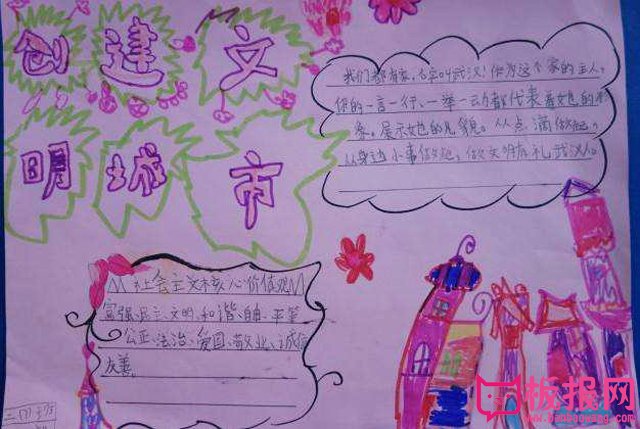 创建文
明城市
我们都有家,名字叫武汉!作为这个家的主人,
你的一言一行、一举一动都代表着她的形
象。展示她的风貌。从点滴做起,
从身边小事做起,做文明有礼武汉人。
社会主义核心价值观
富强、民主、文明、和谐、自由、平等
公正、法治、爱国、敬业、诚信
友善。
板报网
www.banbaowang.com